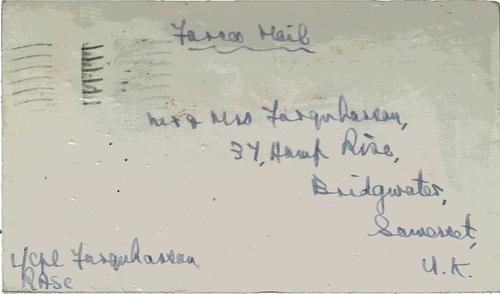 Forces Mail
Mr & Mrs Farquharson,
37, Hamp Rise,
Bridgwater,
Somerset,
U.K.
L/Cpl Farquharson
RASC